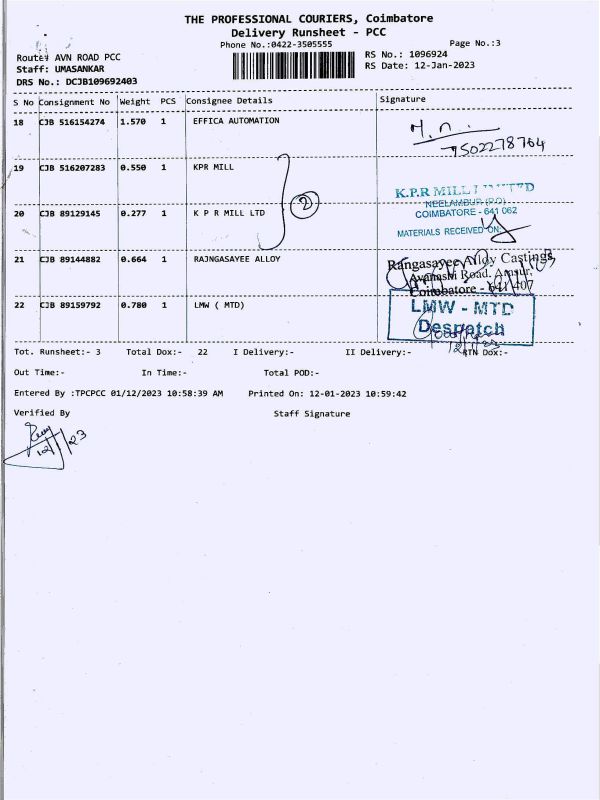 THE PROFESSIONAL COURIERS, Coimbatore
Delivery Runsheet - PCC
Phone No.:0422-3505555
Page No.:3
Route# AVN ROAD PCC
RS No.: 1096924
Staff: UMASANKAR
RS Date: 12-Jan-2023
DRS No.: DCJB109692403
S No Consignment No Weight PCS Consignee Details Signature
18 CJB 516154274 1.570 1 EFFICA AUTOMATION
M.n.
7502278764
19 CJB 516207283 0.550 1 KPR MILL
K.P.R MILL LIMITED
NEELAMBUR (P.O)
20 CJB 89129145 0.277 1 K P R MILL LTD
2
COIMBATORE - 641 062
MATERIALS RECEIVED ON:
21 CJB 89144882 0.664 1 RAJNGASAYEE ALLOY
Rangasayee Alloy Castings,
Avanashi Road, Arasur,
Coimbatore - 641 407
22 CJB 89159792 0.780 1 LMW ( MTD)
LMW - MTD
Despatch
Tot. Runsheet:- 3 Total Dox:- 22 I Delivery:- II Delivery:- RTN Dox:-
Out Time:- In Time:- Total POD:-
Entered By :TPCPCC 01/12/2023 10:58:39 AM Printed On: 12-01-2023 10:59:42
Verified By Staff Signature
12/1/23